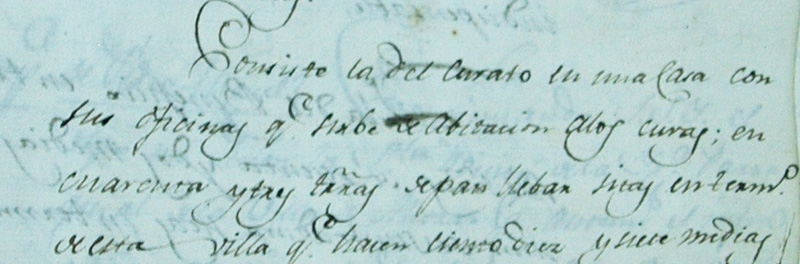 Consiste la del Curato en una Casa con
sus oficinas q.e sirbe de Abitacion alos curas; en
cuarenta y tres trrãs de pan lleban sitas en term.o
de esta villa q.e hacen ciento diez y siete medias